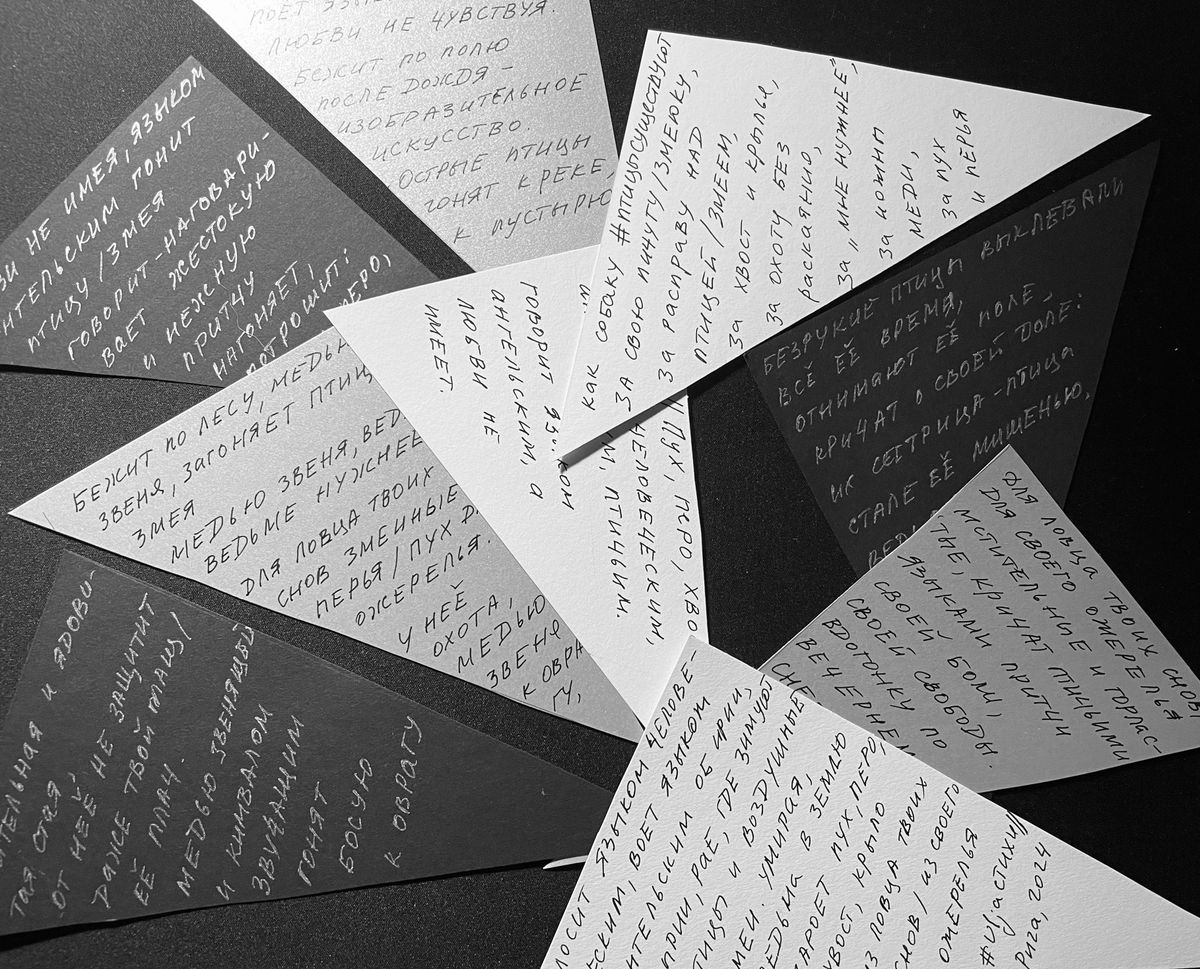 ПОЁТ
ЛЮБВИ НЕ ЧУВСТВУЯ.
БЕЖИТ ПО ПОЛЮ
ПОСЛЕ ДОЖДЯ –
ИЗОБРАЗИТЕЛЬНОЕ
ИСКУССТВО.
ОСТРЫЕ ПТИЦЫ
ГОНЯТ К РЕКЕ,
К ПУСТЫРЮ
НЕ ИМЕЯ, ЯЗЫКОМ
ГОНИТ
ПТИЦУ / ЗМЕЯ
ГОВОРИТ – НАГОВАРИ-
ВАЕТ ЖЕСТОКУЮ
И НЕЖНУЮ
ПРИТЧУ
НАГОНЯЕТ,
ПОТРОШИТ:
КАК СОБАКУ #ПТИЦЫСУЩЕСТВУЮТ
ЗА СВОЮ ПИЧУГУ / ЗМЕЮКУ,
ЗА РАСПРАВУ НАД
ПТИЦЕЙ / ЗМЕЕМ,
ЗА ХВОСТ И КРЫЛЬЯ,
ЗА ОХОТУ БЕЗ
РАСКАЯНИЮ,
ЗА „МНЕ НУЖНЕЕ",
ЗА НОЖНЫ
МЕДИ,
ЗА ПУХ
И ПЕРЬЯ
БЕЗРУКИЕ ПТИЦЫ ВЫКЛЕВАЛИ
ВСЁ ЕЁ ВРЕМЯ,
ОТНИМАЮТ ЕЁ ПОЛЕ,
КРИЧАТ О СВОЕЙ ДОЛЕ:
ИХ СЕСТРИЦА – ПТИЦА
СТАЛЕ ЕЁ МИШЕНЬЮ,
БЕЖИТ ПО ЛЕСУ, МЕДЬЮ
ЗВЕНЯ, ЗАГОНЯЕТ ПТИЦ
ЗМЕЯ
МЕДЬЮ ЗВЕНЯ, ВЕД
ВЕДЬМЕ НУЖНЕЕ
ДЛЯ ЛОВЦА ТВОИХ
СНОВ ЗМЕИНЫЕ
ПЕРЬЯ / ПУХ
ОЖЕРЕЛЬЯ.
У НЕЁ
ОХОТА,
МЕДЬЮ
ЗВЕНЯ
К ОВРА
ГУ,
ПУХ, ПЕРО, ХВО
ЧЕЛОВЕЧЕСКИМ,
ПТИЧЬИМ.
ГОВОРИТ ЯЗЫКОМ
АНГЕЛЬСКИМ, А
ЛЮБВИ НЕ
ИМЕЕТ.
ДЛЯ ЛОВЦА ТВОИХ СНОВ
ДЛЯ СВОЕГО ОЖЕРЕЛЬЯ
МСТИТЕЛЬНЫЕ И ГОРЛАС-
ТЫЕ, КРИЧАТ ПТИЧЬИМИ
ЯЗЫКАМИ ПРИТЧИ
СВОЕЙ БОЛИ,
СВОЕЙ СВОБОДЫ.
ВДОГОНКУ ПО
ВЕЧЕРНЕМ
И ЯДОВИ-
ТАЯ СТАЯ,
ОТ НЕЁ НЕ ЗАЩИТИТ
ДАЖЕ ТВОЙ ПЛАЩ /
ЕЁ ПЛАЧ.
МЕДЬЮ ЗВЕНЯЩЕЙ
И КИМВАЛОМ
ЗВУЧАЩИМ
ГОНЯТ
БОСУЮ
К ОВРАГУ
ЯЗЫКОМ ЧЕЛОВЕ-
ЧЕСКИМ, ВОЕТ ЯЗЫКОМ
ОБ ИРИИ,
ИРИИ, РАЕ, ГДЕ ЗИМУЮТ
ПТИЦЫ И ВОЗДУШНЫЕ
ЗМЕИ. УМИРАЯ,
ВЕДЬМА В ЗЕМЛЮ
ЗАРОЕТ ПУХ, ПЕРО,
ХВОСТ, КРЫЛО
ИЗ ЛОВЦА ТВОИХ
СНОВ / ИЗ СВОЕГО
ОЖЕРЕЛЬЯ
РИГА, 2024